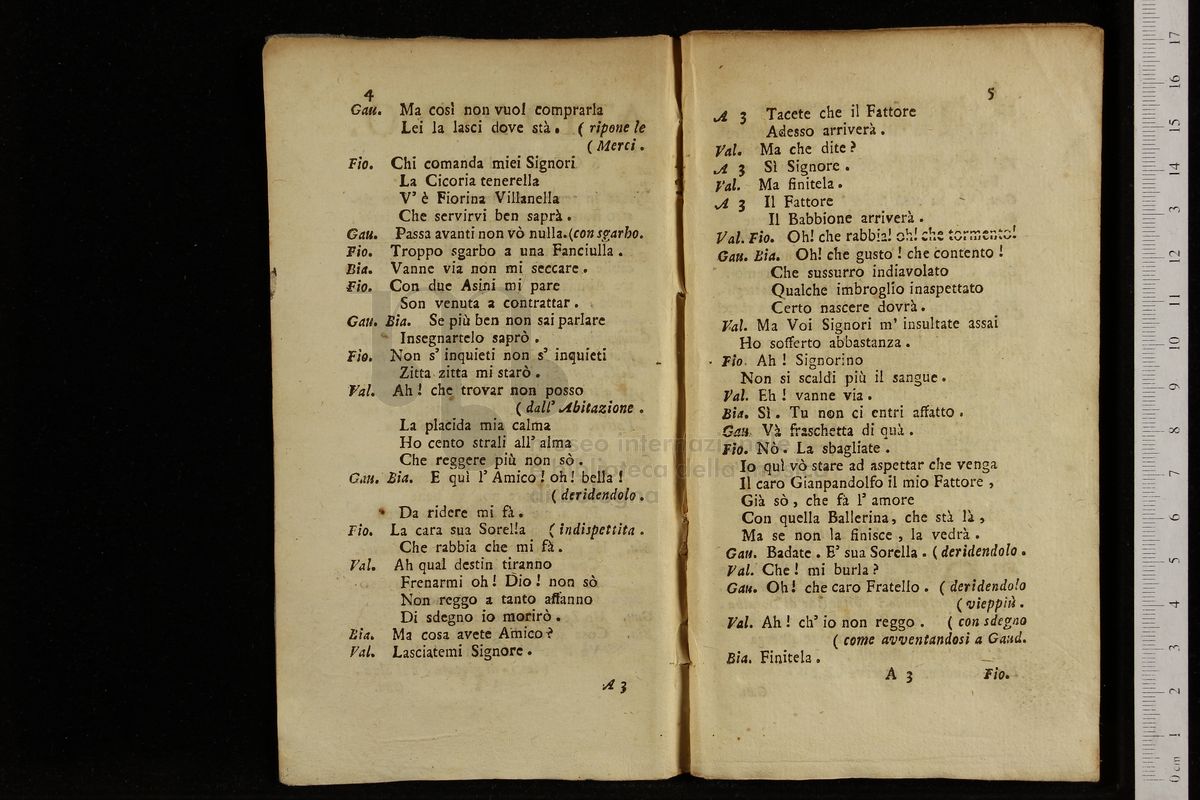 4
Gau. Ma così non vuol comprarla
Lei la lasci dove stà. ( ripone le
( Merci.
Fio. Chi comanda miei Signori
La Cicoria tenerella
V' è Fiorina Villanella
Che servirvi ben saprà.
Gau. Passa avanti non vò nulla. (con sgarbo.
Fio. Troppo sgarbo a una Fanciulla.
Bia. Vanne via non mi seccare.
Fio. Con due Asini mi pare
Son venuta a contrattar.
Gau. Bia. Se più ben non sai parlare
Insegnartelo saprò.
Fio. Non s' inquieti non s' inquieti
Zitta zitta mi starò.
Val. Ah! che trovar non posso
( dall' Abitazione.
La placida mia calma
Ho cento strali all' alma
Che reggere più non sò.
Gau. Bia. E quì l' Amico! oh! bella!
( deridendolo.
Da ridere mi fà.
Fio. La cara sua Sorella ( indispettita.
Che rabbia che mi fà.
Val. Ah qual destin tiranno
Frenarmi oh! Dio! non sò
Non reggo a tanto affanno
Di sdegno io morirò.
Bia. Ma cosa avete Amico?
Val. Lasciatemi Signore.
A 3
5
A 3 Tacete che il Fattore
Adesso arriverà.
Val. Ma che dite?
A 3 Sì Signore.
Val. Ma finitela.
A 3 Il Fattore
Il Babbione arriverà.
Val. Fio. Oh! che rabbia! oh! che tormento!
Gau. Bia. Oh! che gusto! che contento!
Che sussurro indiavolato
Qualche imbroglio inaspettato
Certo nascere dovrà.
Val. Ma Voi Signori m' insultate assai
Ho sofferto abbastanza.
Fio. Ah! Signorino
Non si scaldi più il sangue.
Val. Eh! vanne via.
Bia. Sì. Tu non ci entri affatto.
Gau. Và fraschetta di quà.
Fio. Nò. La sbagliate.
Io quì vò stare ad aspettar che venga
Il caro Gianpandolfo il mio Fattore,
Già sò, che fà l' amore
Con quella Ballerina, che stà là,
Ma se non la finisce, la vedrà.
Gau. Badate. E' sua Sorella. ( deridendolo.
Val. Che! mi burla?
Gau. Oh! che caro Fratello. ( deridendolo
( vieppiù.
Val. Ah! ch' io non reggo. ( con sdegno
( come avventandosi a Gaud.
Bia. Finitela.
A 3 Fio.
museo internazionale
e biblioteca della musica
di bologna
0 cm 1 2 3 4 5 6 7 8 9 10 11 12 13 14 15 16 17